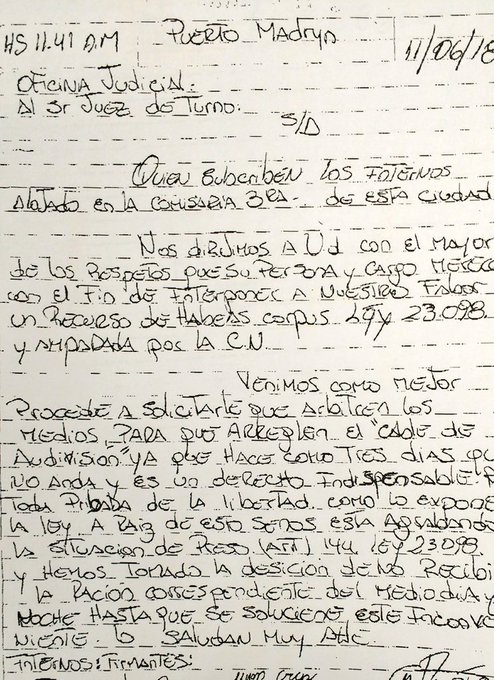 HS 11.41 A.M PUERTO MADRYN 11/06/18
OFICINA JUDICIAL:
Al Sr JUEZ de TURNO:
S/D
QUIEN SUBSCRIBEN LOS INTERNOS
ALOJADO EN LA COMISARIA 3RA. DE ESTA CIUDAD
NOS DIRIJIMOS A Ud CON EL MAYOR
DE LOS RESPETOS QUE SU PERSONA Y CARGO MEREC
CON EL FIN DE INTERPONER A NUESTRO FABOR
UN RECURSO DE HABEAS CORPUS LEY 23.098
Y AMPARADA POR LA C.N.
VENIMOS COMO MEJOR
PROCEDE A SOLICITARLE QUE ARBITREN LOS
MEDIOS PARA QUE ARREGLEN EL "CABLE DE
AUDIVISION" YA QUE HACE COMO TRES DIAS QU
NO ANDA Y ES UN DERECHO INDISPENSABLE P
TODA PRIBADA DE LA LIBERTAD COMO LO EXPONE
LA LEY A RAIZ DE ESTO SENOS ESTA AGRABANDO
LA SITUACION DE PRESO (ART) 144 LEY 23.098
Y HEMOS TOMADO LA DESICION DE NO RECIBI
LA RACION CORRESPONDIENTE DEL MEDIODIA Y
NOCHE HASTA QUE SE SOLUCIENE ESTE INCONVE
NIENTE LO SALUDAN MUY ATTE
INTERNOS: FIRMANTES: